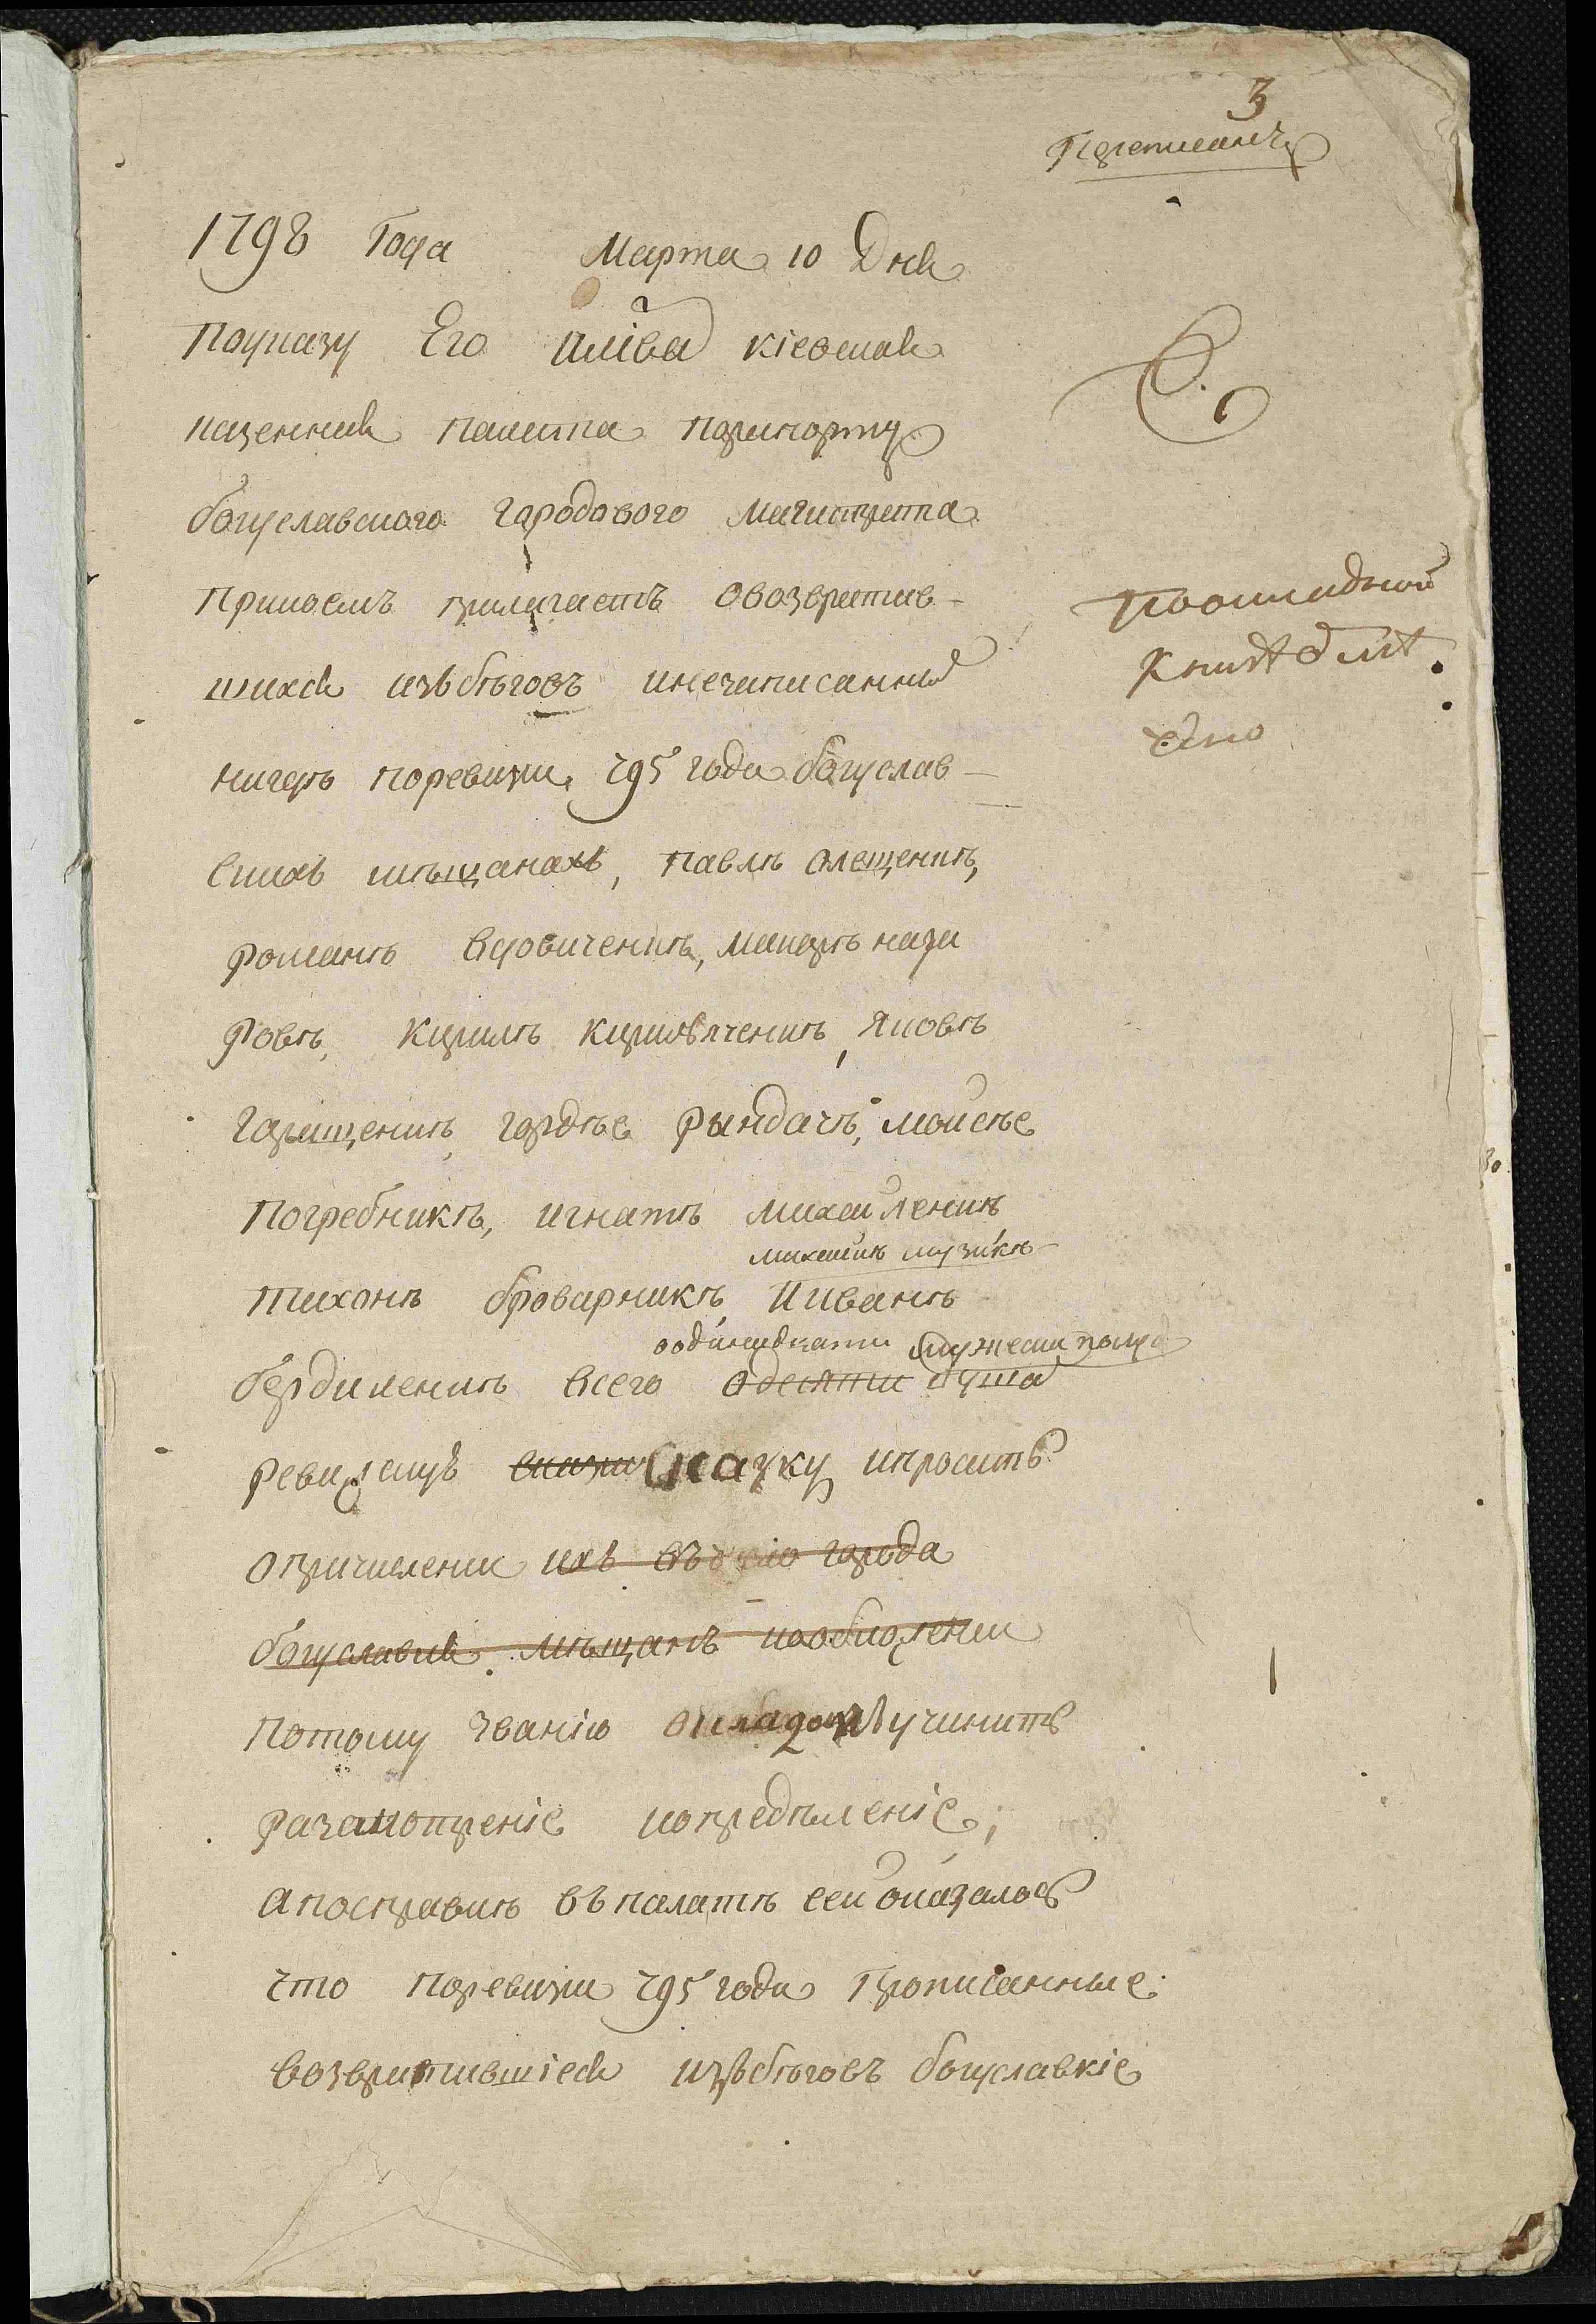 3
Переписанъ
1798 Года Марта 10 Дня
поуказу Его импва кіевская
казенная палата порапорту
богуславского городового магистрата
прикоемъ прилагаетъ овозвратив-
шихся избѣговъ инезаписанных
нигдѣ поревизи 795 года богуслав-
скихъ мѣщанахъ, павлѣ олещенкѣ,
романѣ вдовиченкѣ, макарѣ наза
ровѣ, кирилѣ кириліченкѣ, яковѣ
геращенкѣ, гордѣе рындачѣ, мойсѣе
погребникѣ, игнатѣ михайленкѣ
михайлѣ музикѣ
тихонѣ броварникѣ иивансѣ
оодинадцати мужеска полу
бердиленкѣ всего одесяти душах
ревизскую сказку ипроситъ
опричислении ихъ въ города
богуслава мѣщанъ иообложении
потому званію окладомъ учинить
разсмотреніе иопредѣленіе;
апосправкѣ въ палатѣ сей оказалось
что поревизи 795 года прописанные
возвратившіеся избѣговъ богуславкіе